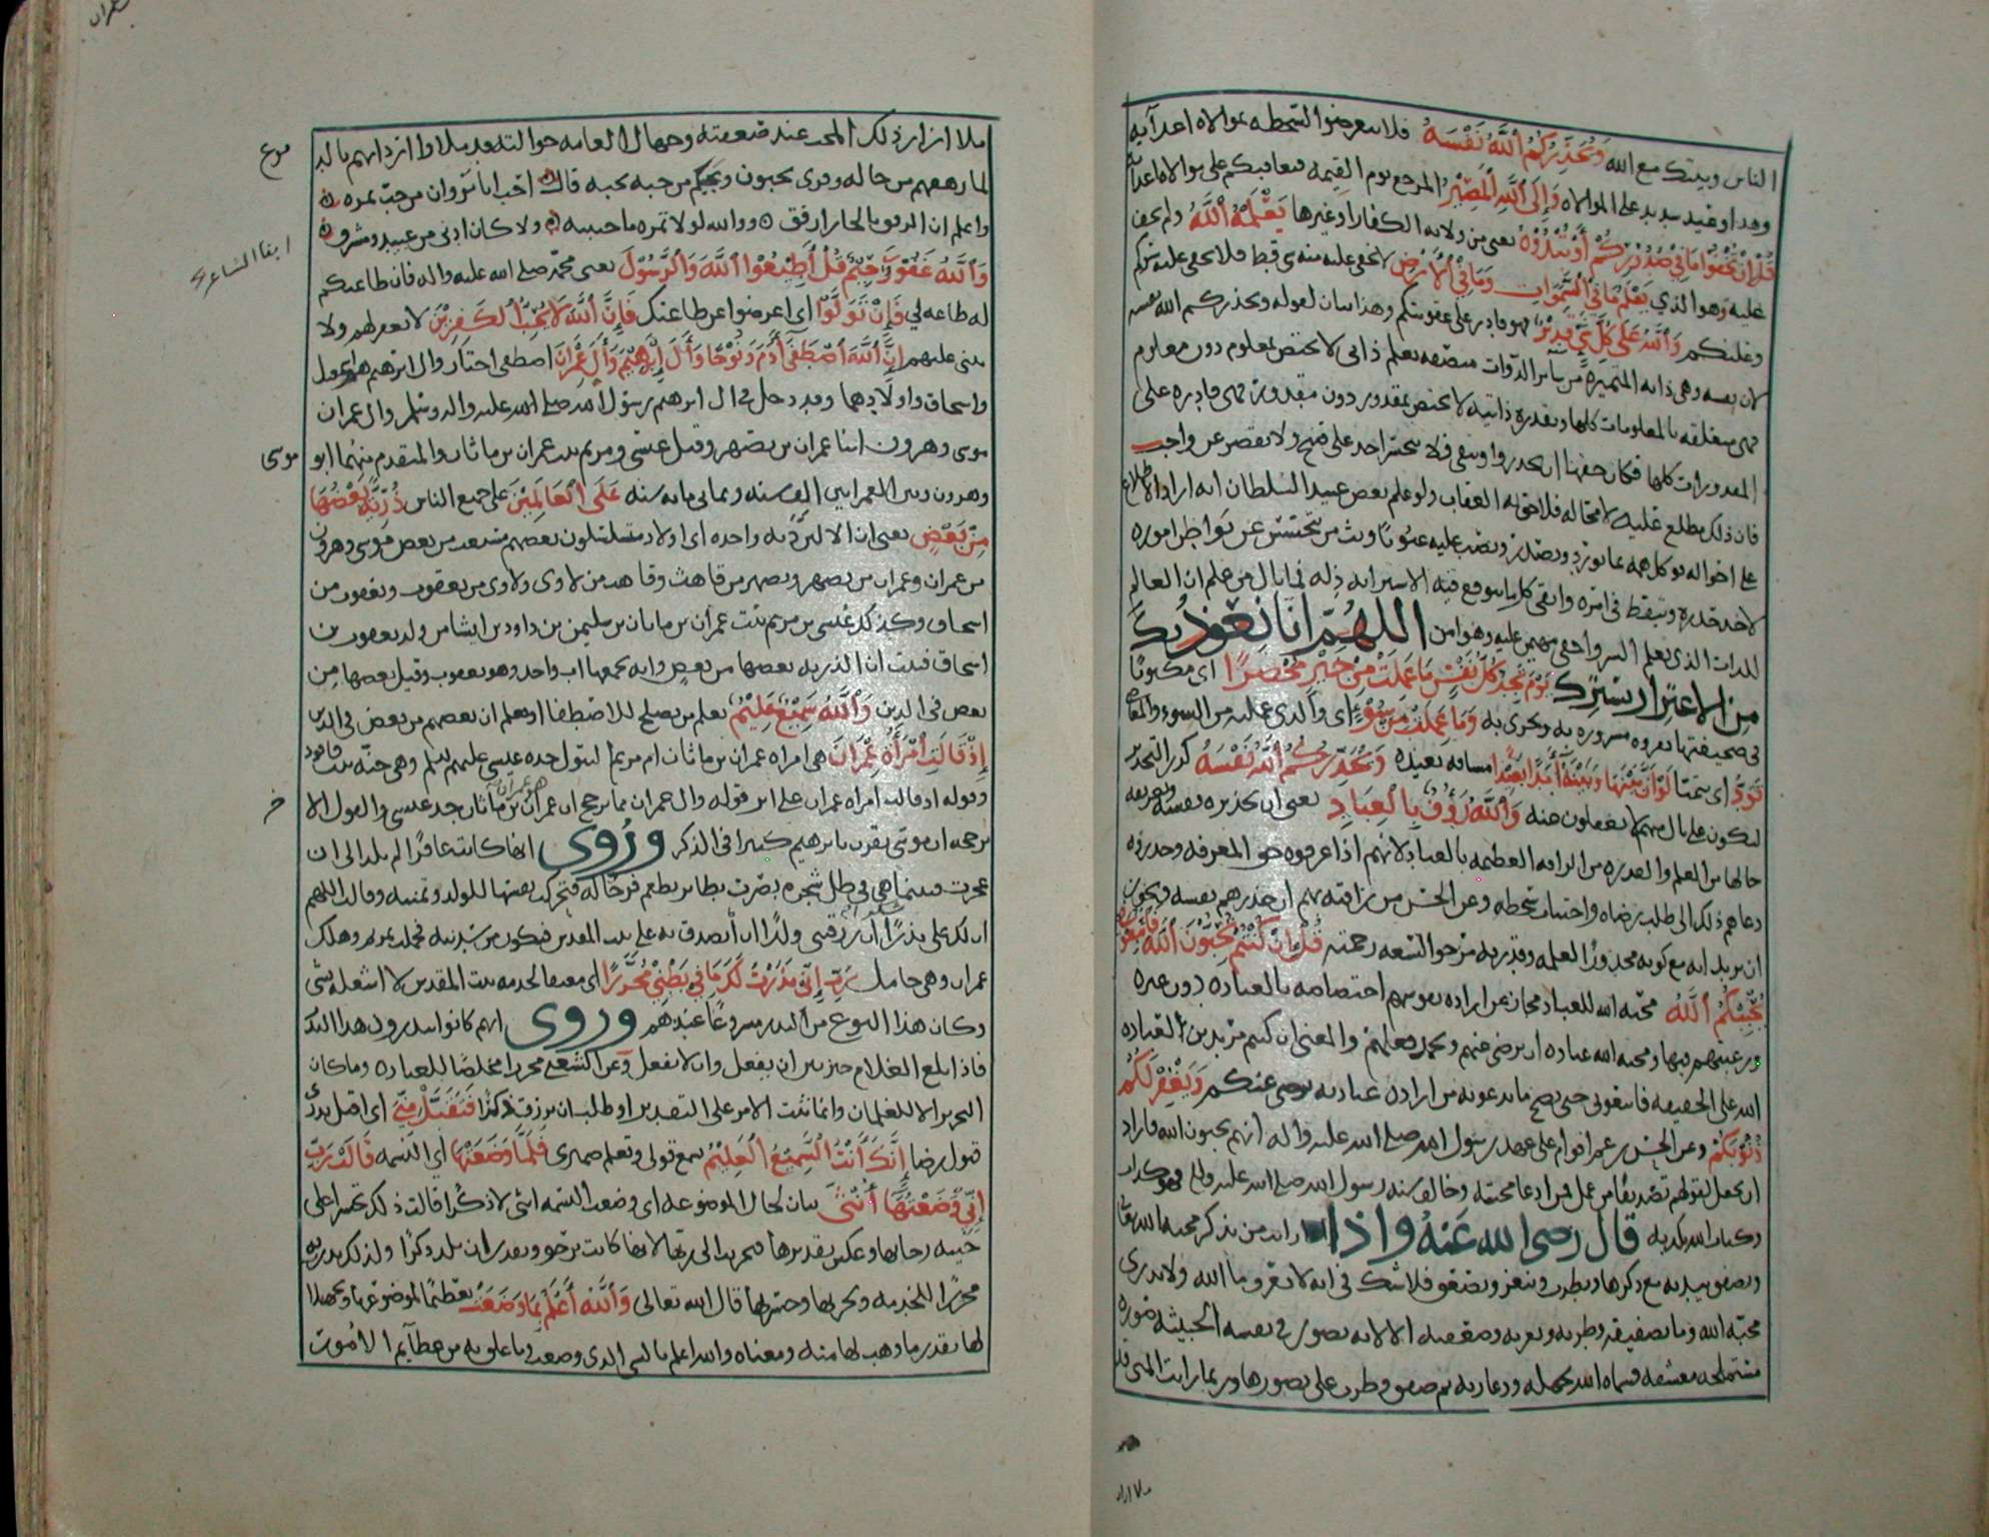 الناس وبينك مع الله وَيُحَذِّرُكُمُ ٱللَّهُ نَفْسَهُ فلا تتعرضوا لسخطه بموالاه اعدآيه
وهذا وعيد شديد على الموالاه وَإِلَى ٱللَّهِ ٱلْمَصِيْرُ المرجع يوم القيمه فيعاقبكم على موالاه اعدايه
قُلْ إِنْ تُخْفُوا مَا فِي صُدُوْرِكُمْ أَوْ تُبْدُوْهُ يعنى من ولايه الكفار او غيرها يَعْلَمْهُ ٱللَّهُ ولم يخف
عليه وهو الذي يَعْلَمُ مَا فِي ٱلسَّمَوَاتِ وَمَا فِي ٱلْأَرْضِ لا يخفى عليه منه شي قط فلا يخفى عليه سركم
وعلنكم وَٱللَّهُ عَلَى كُلِّ شَيْءٍ قَدِيْرٌ فهو قادر على عقوبتكم وهذا بيان لقوله ويحذركم الله نفسه
لان نفسه وهي ذاته المتميزه من سآئر الذوات متصفه بعلم ذاتي لا يختص بمعلوم دون معلوم
فهي متعلقه بالمعلومات كلها وبقدره ذاتيه لا تختص بمقدور دون مقدور فهي قادره على
المقدورات كلها فكان حقها ان تحذروا وتتقى فلا يجسر احد على قبيح ولا يقصر عن واجب
فان ذلك مطلع عليه لا محاله فلاحق به العقاب ولو علم بعض عبيد السلطان انه اراد الاطلاع
على احواله يوكل همه بما يورد ويصدر ونصب عليه عيونا وبث من يتجسس عن بواطن اموره
لاخذ حذره وتيقظ في امره واتقى كل ما يتوقع فيه الاسترابه به فما بال من علم ان العالم
الذات الذي يعلم السر واخفى مهيمن عليه وهو امن اللهُمّ انا نعوذ بك
من الاغترار بسترك يَوْمَ تَجِدُ كُلُّ نَفْسٍ مَا عَمِلَتْ مِنْ خَيْرٍ مُحْضَرًا اي مكتوبا
في صحيفتها تقروه مسروره به وتجزى به وَمَا عَمِلَتْ مِنْ سُوْءٍ اي والذي عملته من السوء والمعاصي
تَوَدُّ اي تتمنا لَوْ أَنَّ بَيْنَهَا وَبَيْنَهُ أَمَدًا بَعِيْدًا مسافه بعيده وَيُحَذِّرُكُمُ ٱللَّهُ نَفْسَهُ كرر التحذير
ليكون على بال منهم لا يغفلون عنه وَٱللَّهُ رَؤُفٌ بِالْعِبَادِ يعنى ان تحذيره نفسه وتعريفه
حالها من العلم والقدره من الرافه العظيمه بالعباد لانهم اذا عرفوه حق المعرفه وحذروه
دعاهم ذلك الى طلب رضاه واجتناب سخطه وعن الحسن من رافته بهم ان حذرهم نفسه ويجوز
ان يريد انه مع كونه محذورا لعلمه وقدرته مرجو لسعه رحمته قُلْ إِنْ كُنْتُمْ تُحِبُّوْنَ ٱللَّهَ فَاتَّبِعُوْنِي
يُحْبِبْكُمُ ٱللَّهُ محبه الله للعباد مجاز عن اراده نفوسهم اختصاصه بالعباده دون غيره
ورغبتهم فيها ومحبه الله عباده ان يرضى عنهم ويحمد فعلهم والمعنى ان كنتم مريدين لعباده
الله على الحقيقه فاتبعونى حتى يصح ما تدعونه من اراده عبادته يرضى عنكم وَيَغْفِرْ لَكُمْ
ذُنُوْبَكُمْ وعن الحسن زعم اقوام على عهد رسول الله صلى الله عليه واله انهم يحبون الله فاراد
ان يجعل لقولهم تصديقا من عمل فمن ادعا محبته وخالف سنه رسول الله صلى الله عليه واله فهو كذاب
وكتاب الله يكذبه قال رضى الله عَنهُ واذا رايت من يذكر محبه الله تعالى
ويصفق بيديه مع ذكرها ويطرب وينعر ويصعق فلا تشك في انه لا يعرف ما الله ولا يدرى
محبه الله وما تصفيقه وطربه ونعرته وصعقته الا لانه تصور في نفسه الخبيثه صوره
مستملحه معشقه فسماه الله بجهله ودعارته ثم صفق وطرب على تصورها وربما رايت المنى قد
ملا ازار ذلك المحب عند صعقته وجهال العامه حواليه قد ملاوا اردانهم بالد
لما رققهم من حاله وقرى تحبون ويحبكم من حبه يحبه قال احب ابا ثروان من حب تمره
واعلم ان الرفق بالجار ارفق ووالله لولا تمره ما حببته ولا كان ادنى من عبيد ومشرق
وَٱللَّهُ غَفُوْرٌ رَحِيْمٌ قُلْ أَطِيْعُوْا ٱللَّهَ وَٱلرَّسُوْلَ يعنى محمد صلى الله عليه واله فان طاعتكم
له طاعه لي فَإِنْ تَوَلَّوْا اي اعرضوا عن طاعتك فَإِنَّ ٱللَّهَ لَا يُحِبُّ ٱلْكَفِرِيْنَ لا يغفر لهم ولا
يثنى عليهم إِنَّ ٱللَّهَ ٱصْطَفَى آدَمَ وَنُوْحًا وَآلَ إِبْرَهِيْمَ وَآلَ عِمْرَانَ اصطفى اختار وال ابرهيم هم اسمعيل
واسحاق واولادهما وقد دخل في ال ابرهيم رسول الله صلى الله عليه واله وسلم وال عمران
موسى وهرون ابنا عمران بن يصهر وقيل عيسى ومريم بنت عمران بن ماثان والمتقدم منهما ابو موسى
وهرون وبين العمرانين الف سنه وثمانى مايه سنه عَلَى ٱلْعَالَمِيْنَ على جميع الناس ذُرِّيَّةً بَعْضُهَا
مِنْ بَعْضٍ يعنى ان الالين ذريه واحده اي اولاد متسلسلون بعضهم متشعب من بعض موسى وهرون
من عمران وعمران من يصهر ويصهر من قاهث وقاهث من لاوى ولاوى من يعقوب ويعقوب من
اسحاق وكذلك عيسى بن مريم بنت عمران بن ماثان بن سليمن بن داود بن ايشا من ولد يعقوب بن
اسحاق فبينت ان الذريه بعضها من بعض وانه يجمعها اب واحد وهو يعقوب وقيل بعضها من
بعض في الدين وَٱللَّهُ سَمِيْعٌ عَلِيْمٌ يعلم من يصلح للاصطفا او يعلم ان بعضهم من بعض في الدين
إِذْ قَالَتِ ٱمْرَأَةُ عِمْرَانَ هي امراه عمران بن ماثان ام مريم البتول جده عيسى عليهم السلم وهي حنه بنت فاقود
وقوله اذ قالت امراه عمران على اثر قوله وال عمران مما يرجح ان عمران هو عمران بن ماثان جد عيسى والقول الاخر
يرجحه ان موسى يقرن بابرهيم كثيرا في الذكر ورُوى انها كانت عاقرا لم تلد الى ان
عجزت فبينما هي في ظل شجره بصرت بطاير يطعم فرخا له فتحركت نفسها للولد وتمنيه وقالت اللهم
ان لك علي نذرا شكرا ان رزقتنى ولدا ان اتصدق به على بيت المقدس فيكون من سدنته فحملت بمريم وهلك
عمران وهي حامل رَبِّ إِنِّي نَذَرْتُ لَكَ مَا فِي بَطْنِي مُحَرَّرًا اي معتقا لخدمه بيت المقدس لا اشغله بشي
وكان هذا النوع من النذر مشروعا عندهم وروى انهم كانوا ينذرون هذا النذر
فاذا بلغ الغلام خير بين ان يفعل وان لا يفعل وعن الشعبى محررا مخلصا للعباده وما كان
التحرير الا للغلمان وانما بنت الامر على التقدير او طلبت ان ترزق ذكرا فَتَقَبَّلْ مِنِّيْ اي اقبل نذري
قبول رضا إِنَّكَ أَنْتَ ٱلسَّمِيْعُ ٱلْعَلِيْمُ تسمع قولى وتعلم ضميرى فَلَمَّا وَضَعَتْهَا اي النسمه قَالَتْ رَبِّ
إِنِّي وَضَعْتُهَا أُنْثَى بيان لحال الموضوعه اي وضعت النسمه انثى لا ذكرا قالت ذلك تحسرا على
خيبه رجايها وعكس تقديرها فتحزنت الى ربها لانها كانت ترجو وتقدر ان تلد ذكرا ولذلك نذرته
محررا للخدمه ولتحزنها وحسرتها قال الله تعالى وَٱللَّهُ أَعْلَمُ بِمَا وَضَعَتْ تعظيما لموضوعها وتجهيلا
لها بقدر ما وهب لها منه ومعناه والله اعلم بالشي الذى وضعت وما علق به من عظايم الامور